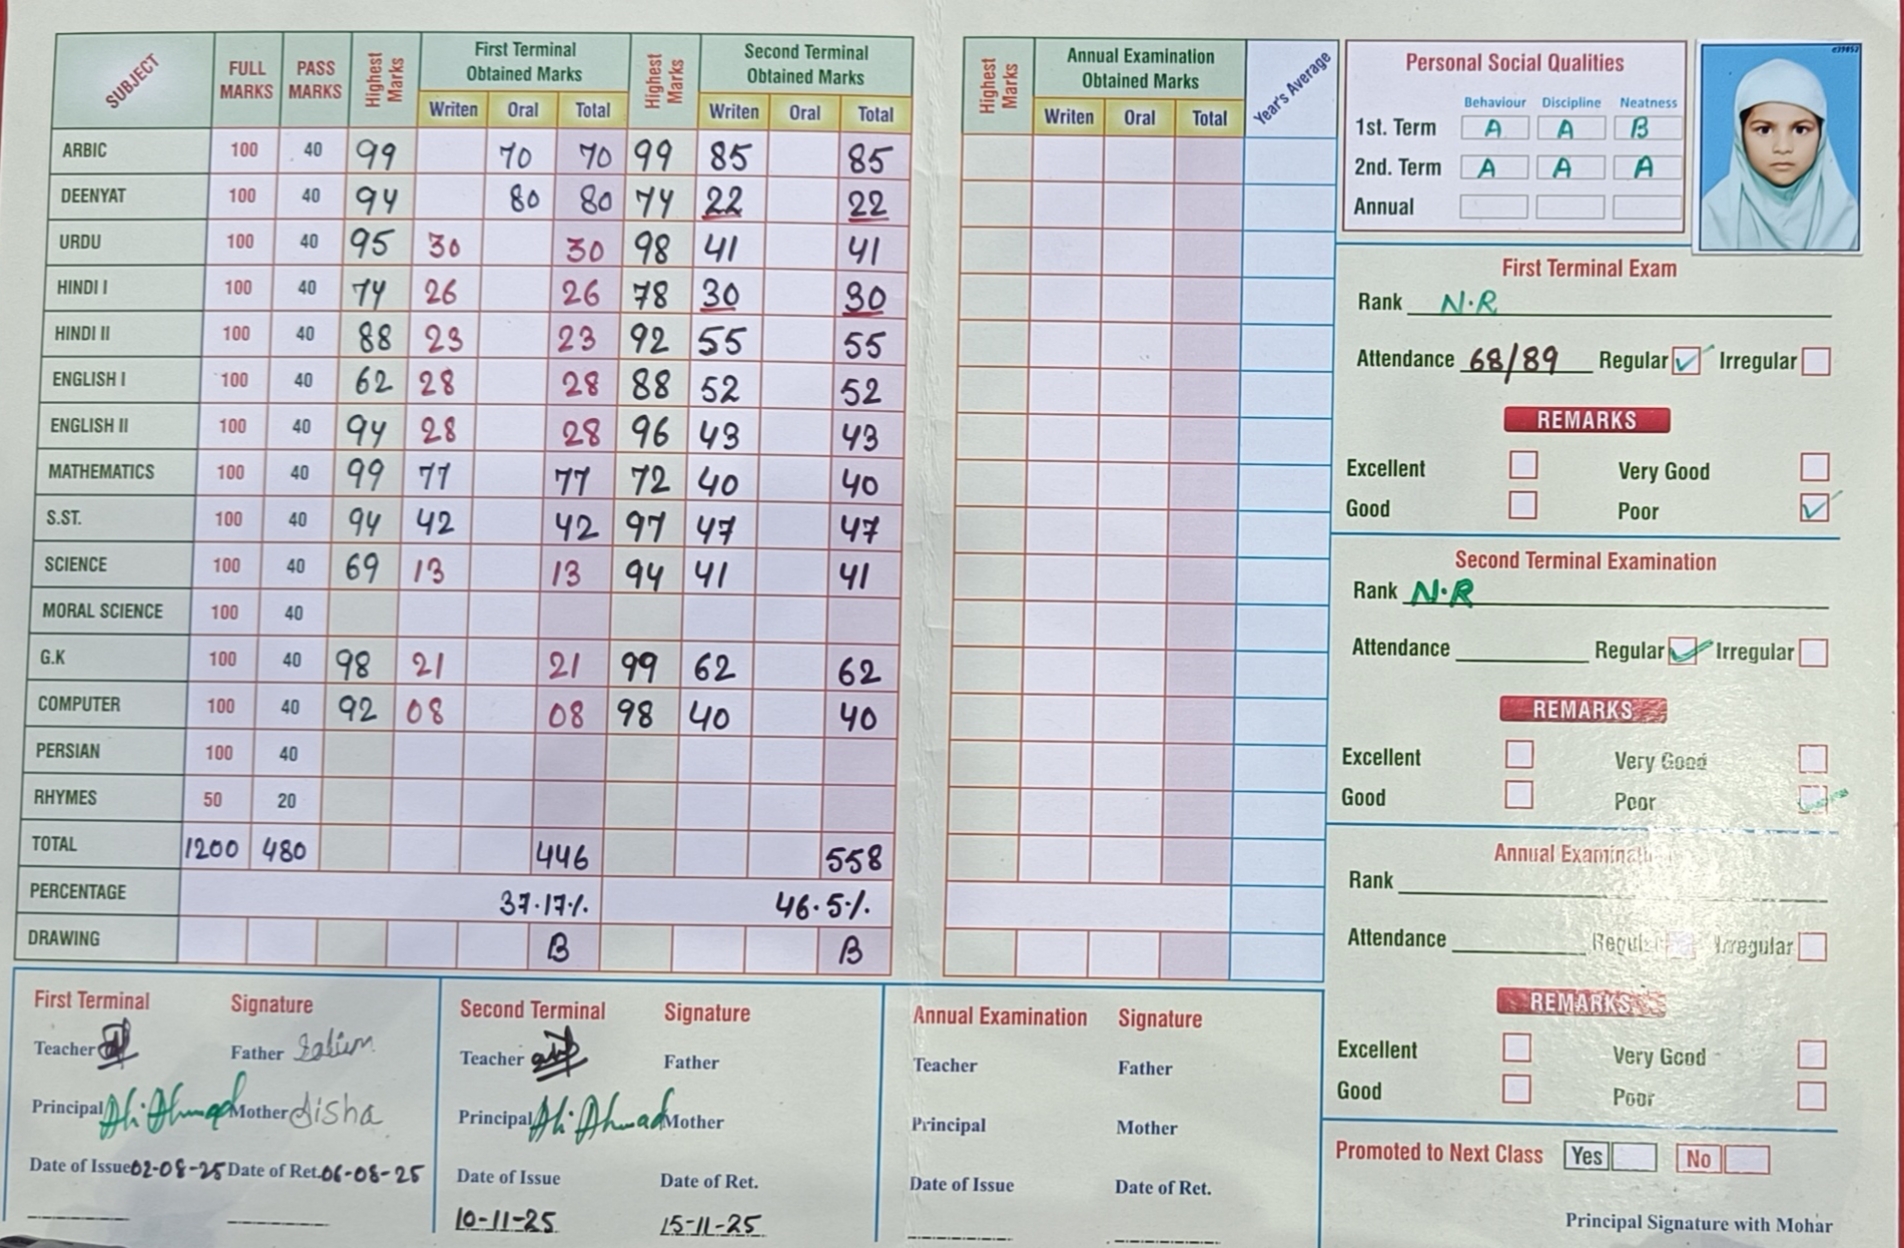 SUBJECT FULL MARKS PASS MARKS Highest Marks First Terminal Obtained Marks Writen Oral Total Highest Marks Second Terminal Obtained Marks Writen Oral Total
ARBIC 100 40 99 70 70 99 85 85
DEENYAT 100 40 94 80 80 74 22 22
URDU 100 40 95 30 30 98 41 41
HINDI I 100 40 74 26 26 78 30 30
HINDI II 100 40 88 23 23 92 55 55
ENGLISH I 100 40 62 28 28 88 52 52
ENGLISH II 100 40 94 28 28 96 43 43
MATHEMATICS 100 40 99 77 77 72 40 40
S.ST. 100 40 94 42 42 97 47 47
SCIENCE 100 40 69 13 13 94 41 41
MORAL SCIENCE 100 40
G.K 100 40 98 21 21 99 62 62
COMPUTER 100 40 92 08 08 98 40 40
PERSIAN 100 40
RHYMES 50 20
TOTAL 1200 480 446 558
PERCENTAGE 37.17% 46.5%
DRAWING B B
First Terminal Signature
Teacher Father Salim
Principal Ali Ahmad Mother Aisha
Date of Issue 02-08-25 Date of Ret. 06-08-25
Second Terminal Signature
Teacher Father
Principal Ali Ahmad Mother
Date of Issue Date of Ret.
10-11-25 15-11-25
Highest Marks Annual Examination Obtained Marks Writen Oral Total Year's Average
Annual Examination Signature
Teacher Father
Principal Mother
Date of Issue Date of Ret.
Personal Social Qualities
Behaviour Discipline Neatness
1st. Term A A B
2nd. Term A A A
Annual
First Terminal Exam
Rank N.R
Attendance 68/89 Regular Irregular
REMARKS
Excellent Very Good
Good Poor
Second Terminal Examination
Rank N.R
Attendance Regular Irregular
REMARKS
Excellent Very Good
Good Poor
Annual Examinati
Rank
Attendance Regul Irregular
REMARKS
Excellent Very Good
Good Poor
Promoted to Next Class Yes No
Principal Signature with Mohar